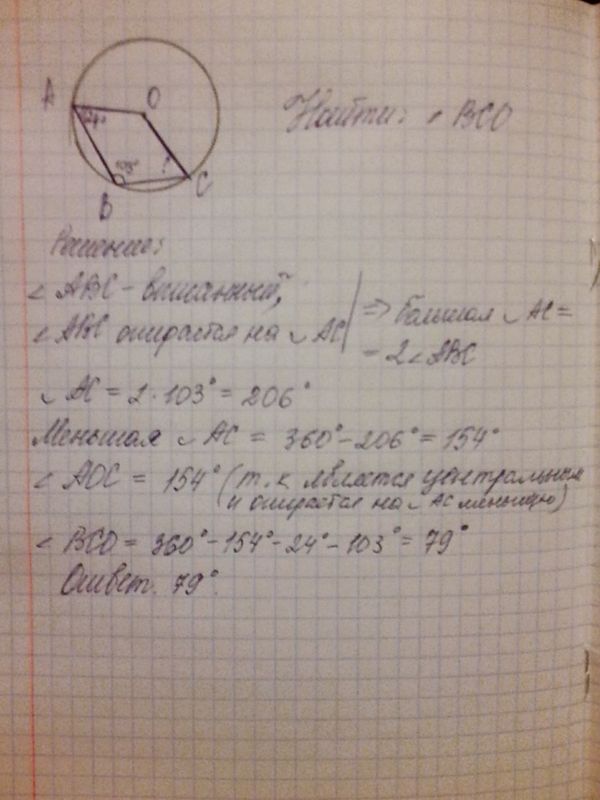 A
O
24°
103°
?
B
C
Найти: ∠ BCO
Решение:
∠ ABC - вписанный,
∠ ABC опирается на ◡ AC
=> Большая ◡ AC =
= 2∠ABC
◡ AC = 2 · 103° = 206°
Меньшая ◡ AC = 360° - 206° = 154°
∠ AOC = 154° (т.к является центральным
и опирается на ◡ AC меньшую)
∠ BCO = 360° - 154° - 24° - 103° = 79°
Ответ. 79°.